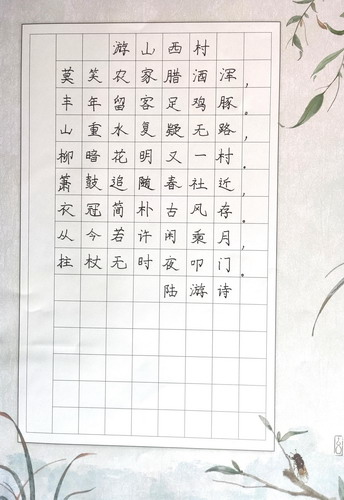 游山西村
莫笑农家腊酒浑，
丰年留客足鸡豚。
山重水复疑无路，
柳暗花明又一村。
箫鼓追随春社近，
衣冠简朴古风存。
从今若许闲乘月，
拄杖无时夜叩门。
陆游诗